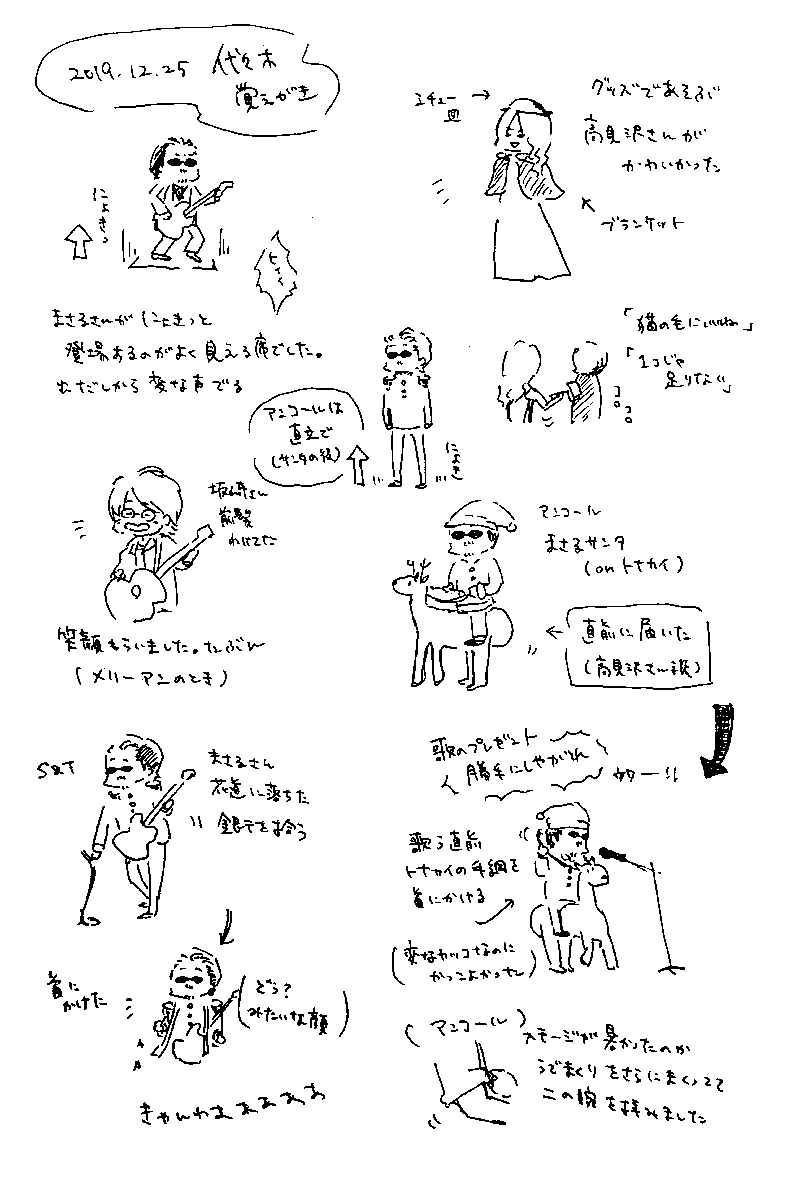 2019.12.25 代々木
覚えがき
にょきっ
まさるさんが にょきっと
登場するのがよく見える席でした。
変な声でる
グッズであそぶ
高見沢さんが
かわいかった
ブランケット
「猫の毛にいいね」
「1コじゃ
足りない」
コロ
コロ
アンコールは
直立で
(サンタの後)
にょき
坂崎さん
前髪
わけてた
笑顔もらいました。たぶん
(メリーアンのとき)
アンコール
まさるサンタ
(onトナカイ)
直前に届いた
(高見沢さん談)
S&T
まさるさん
花道に落ちた
銀テを拾う
首に
かけた
(どう?
みたいな顔)
きゃんわまぁぁぁぁ
歌のプレゼント
勝手にしやがれ
歌う直前
トナカイの手綱を
首にかける
(変なカッコなのに
かっこよかった)
(アンコール)
ステージが暑かったのか
うでまくりをさらにまくってて
二の腕を拝みました